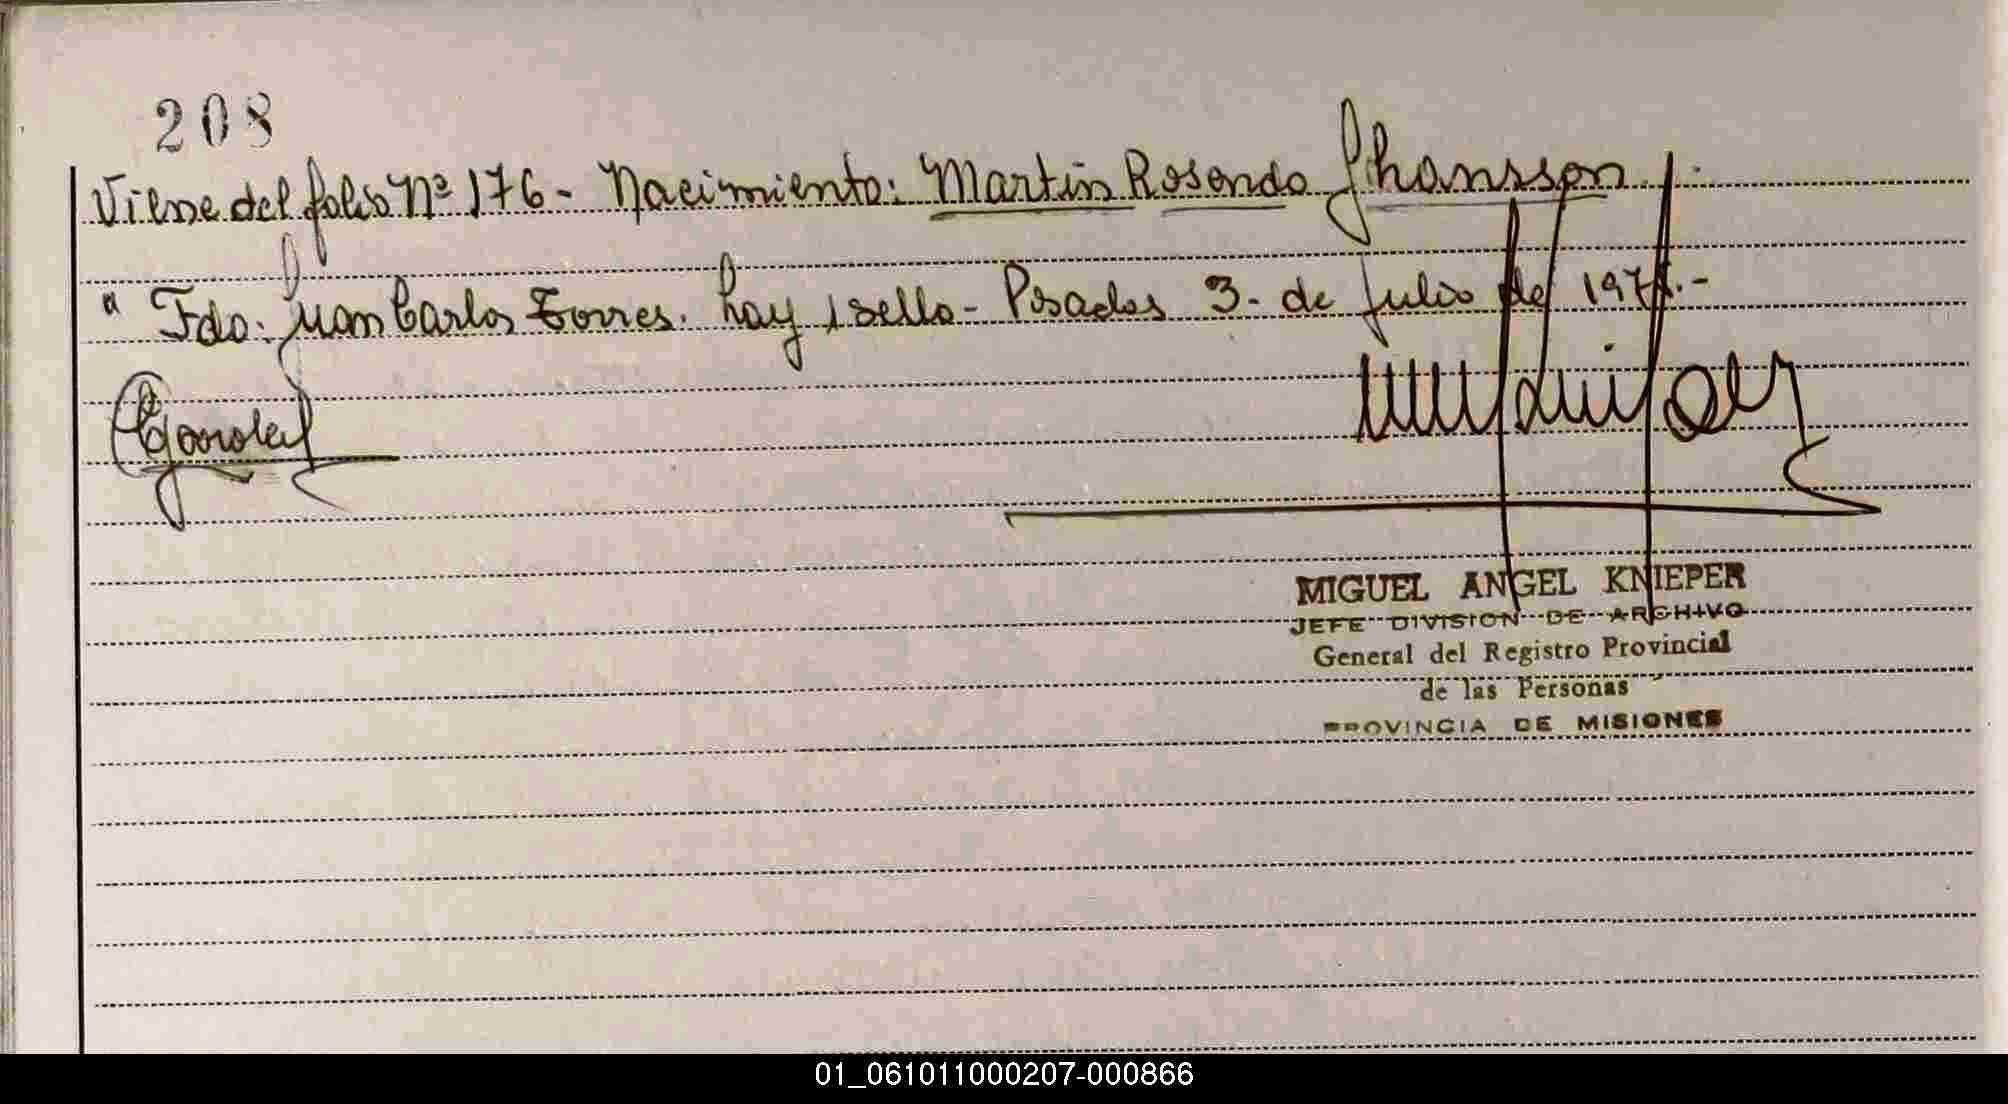 208
Viene del folio Nº 176 - Nacimiento: Martin Rosendo Jhansson
" Fdo: Juan Carlos Torres. hay 1 sello - Posadas 3 - de Julio de
MIGUEL ANGEL KNIEPER
JEFE DIVISION DE ARCHIVO
General del Registro Provincial
de las Personas
PROVINCIA DE MISIONES
01_061011000207-000866